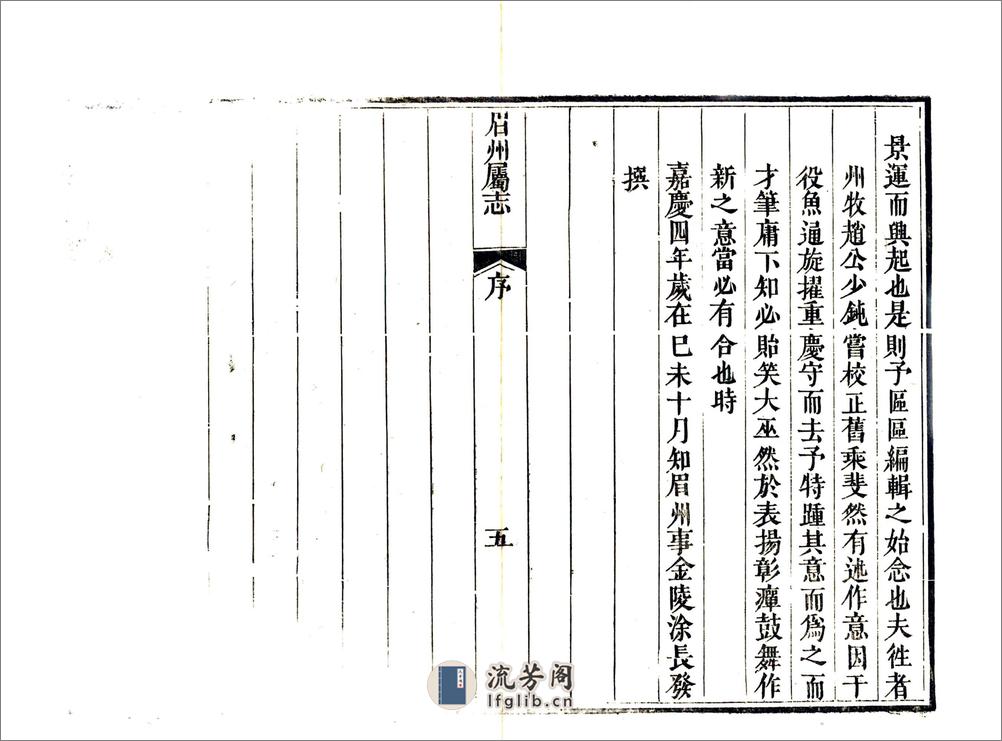 景運而興起也是則予區區編輯之始念也夫徃者
州牧趙公少鈍嘗校正舊乘斐然有述作意因干
役魚通旋擢重慶守而去予特踵其意而爲之而
才筆庸下知必貽笑大巫然於表揚彰癉鼓舞作
新之意當必有合也時
嘉慶四年歲在己未十月知眉州事金陵涂長發
撰
眉州屬志
序
五
流芳阁
lfglib.cn